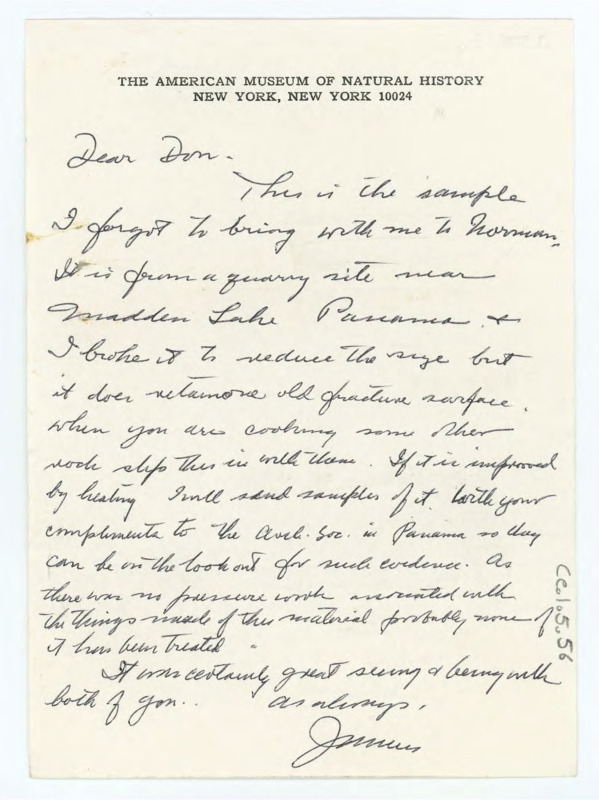 THE AMERICAN MUSEUM OF NATURAL HISTORY
NEW YORK, NEW YORK 10024
Dear Don -
This is the sample
I forgot to bring with me to Norman.
It is from a quarry site near
Madden Lake Panama. &
I broke it to reduce the size but
it does retain one old fracture surface.
When you are cooking some other
rock slip this in with them. If it is improved
by heating I will send samples of it. With your
compliments to the Arch. Soc. in Panama so they
can be on the look out for such evidence. As
there was no pressure work associated with
the things made of this material probably none of
it has been treated
It was certainly great seeing & being with
both of you..
as always,
Junius
Cc01.5.56